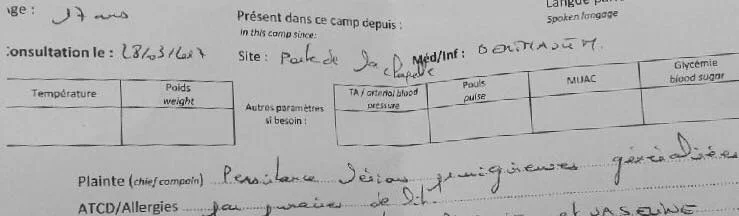 Age : 17 ans
Présent dans ce camp depuis :
Spoken langage
in this camp since:
Consultation le : 28/03/1
Site : Porte de la chapelle Méd/Inf :
Température Poids weight Autres paramètres si besoin : TA / arterial blood pressure Pouls pulse MUAC Glycémie blood sugar
Plainte (chief compain) Persistance lésions prurigineuses généralisées
ATCD/Allergies par punaises de lit.
et VASELINE